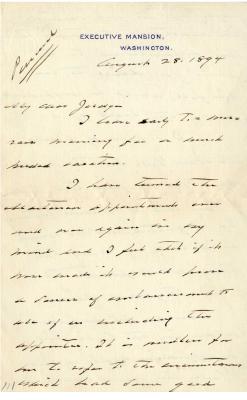 Personal
EXECUTIVE MANSION,
WASHINGTON.
August 28. 1894
My dear
I leave early to-morrow
morning for a much
needed vacation.
I have turned the
appointments over
and over again in my
mind and I feel that if it
were made it would prove
a source of embarrassment to
all of us including the
appointee. It is needless for
me to refer to the circumstances
which had some good